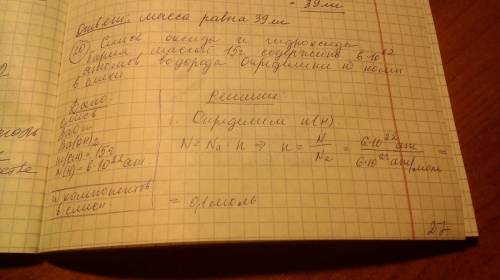 39 м
Ответ: масса равна 39 м
Смесь оксида и гидроксида
бария массой 15г содержит 6·10²²
атомов водорода. Определить ω комп
в смеси
Дано:
смесь
BaO и
Ba(OH)₂
m(см)=15г
N(H)=6·10²² ат
ω) компонентов
в смеси
Решение:
1. Определим n(H)
N=Nа·n ⇒ n = N/Nа = 6·10²² ат / 6·10²³ ат/моль =
= 0,1 моль